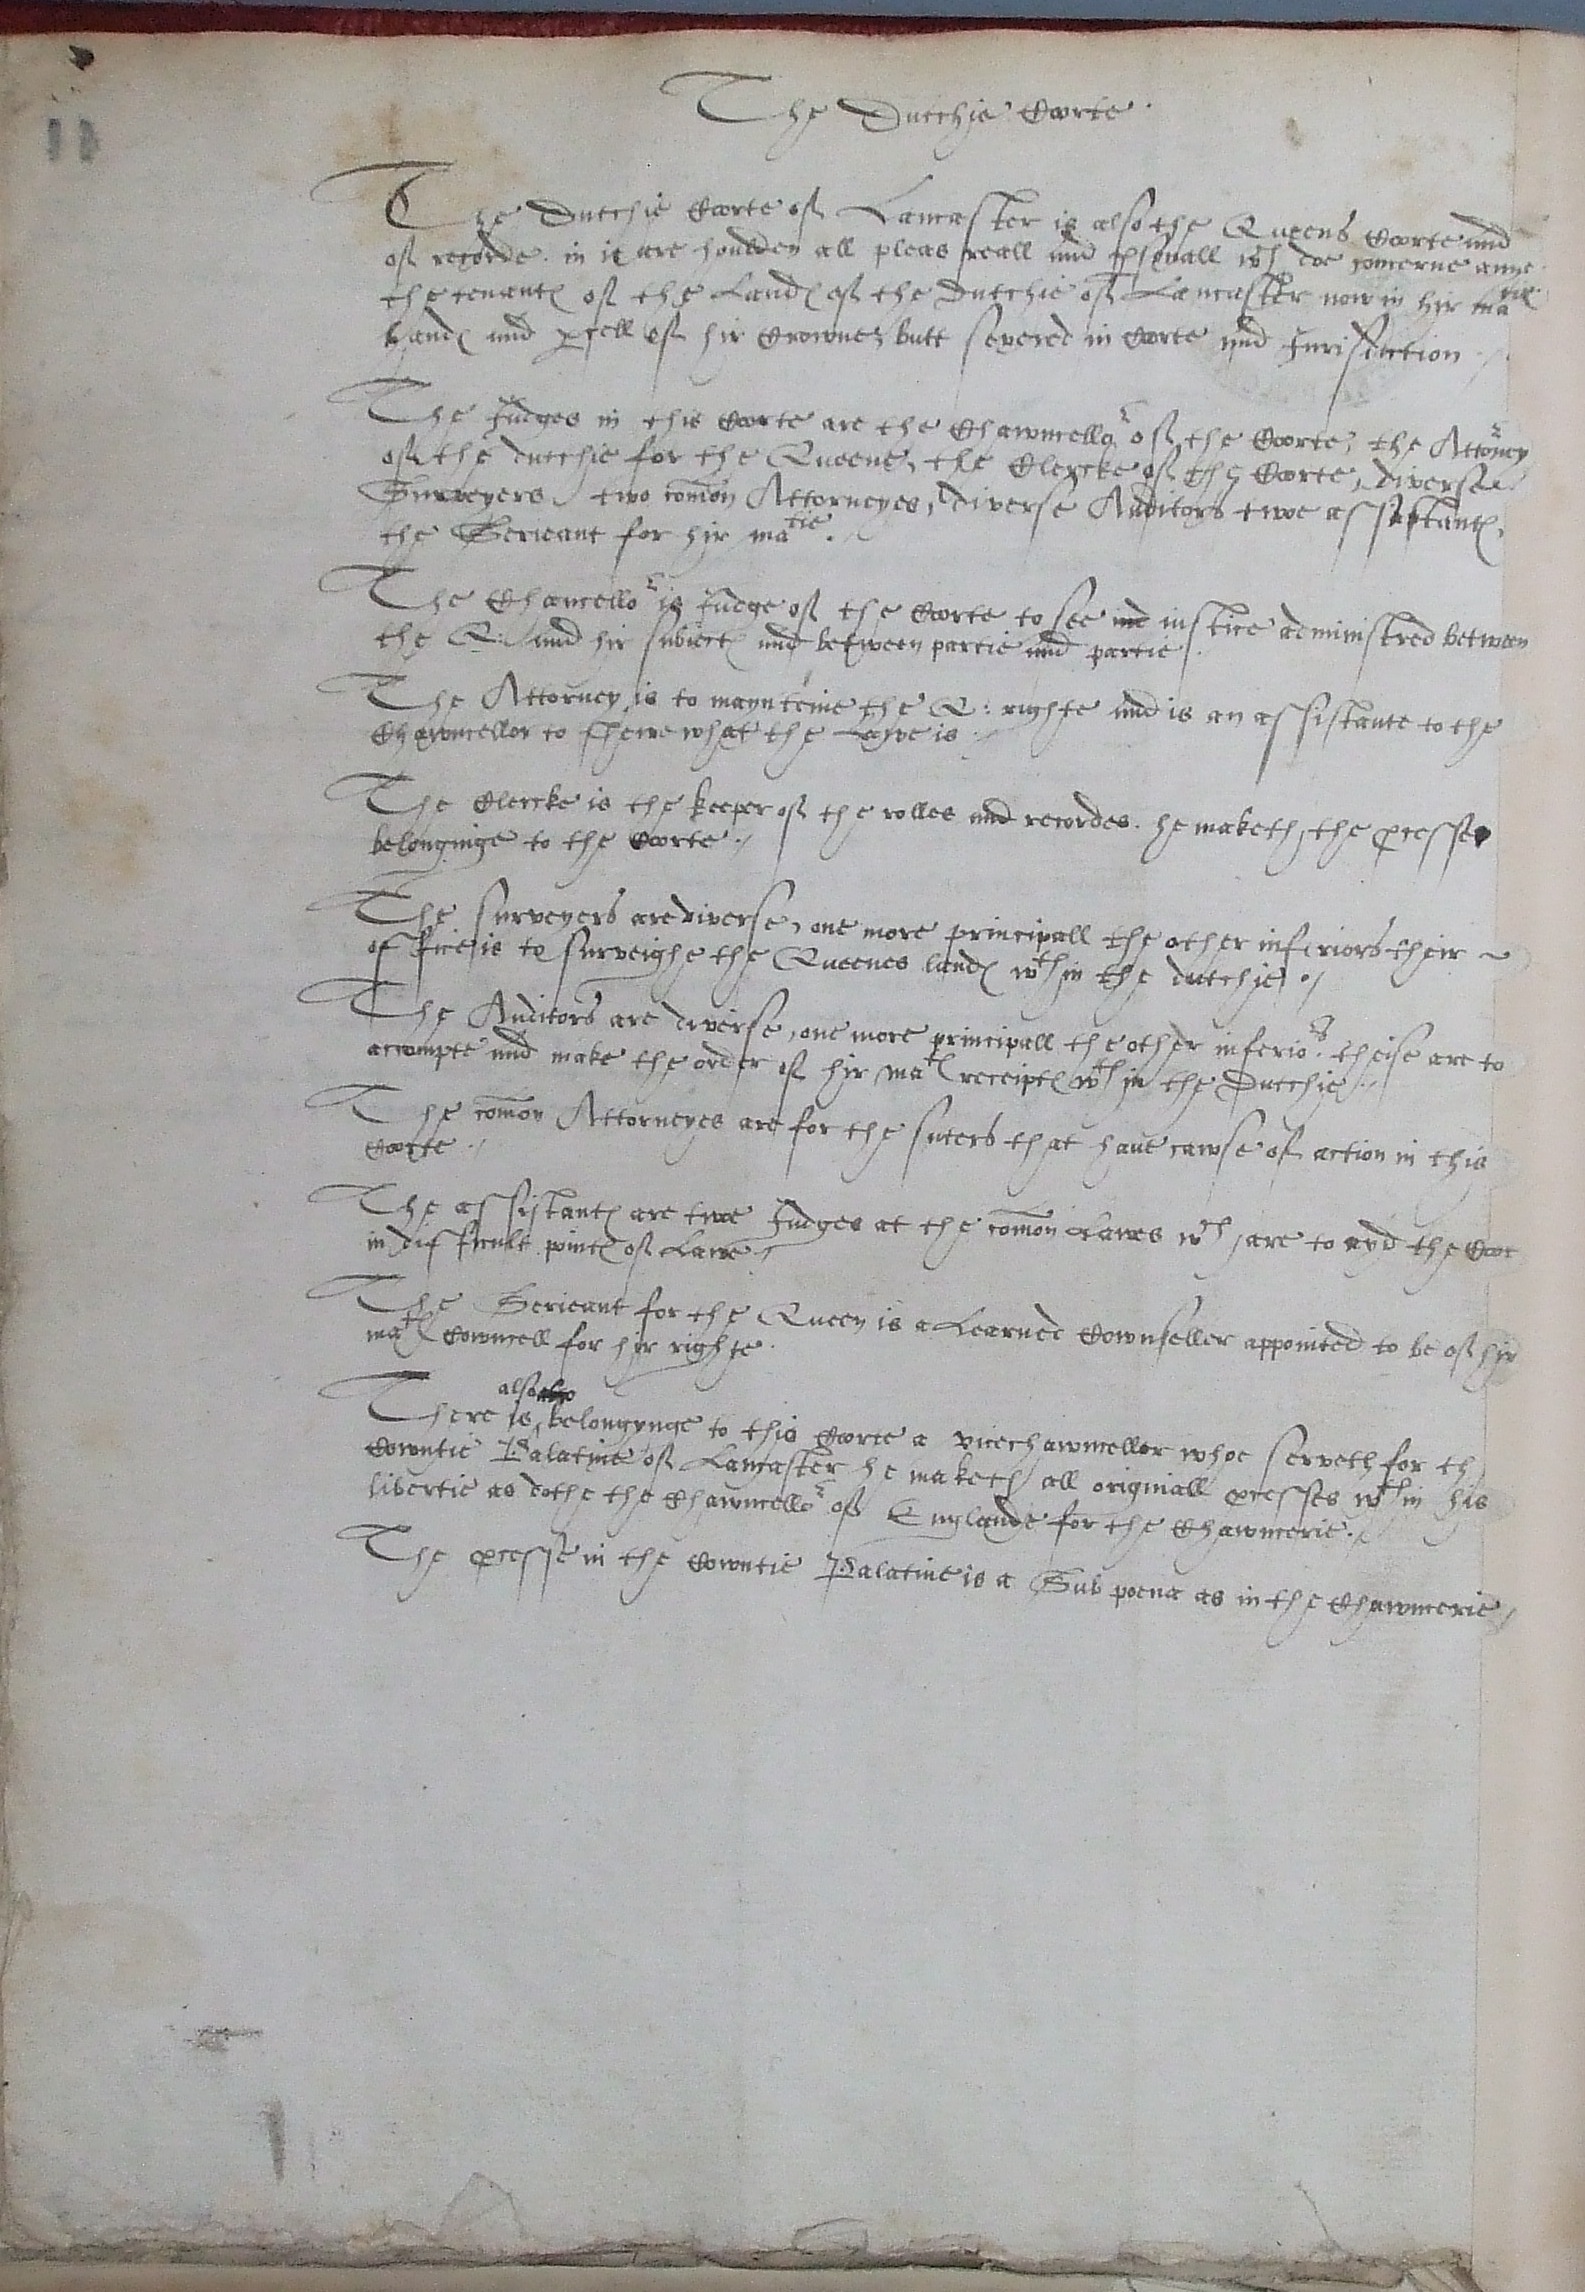 The Dutchie Coorte.
The Dutchie Coorte of Lancaster is also the Queens Coorte and
of recorde. in it are houlden all pleas reall and psonall wch doe concerne anye
the tenantes of the Landes of the Dutchie of Lancaster now in hir maties
handes and pcell of hir Crowne, butt severed in Coorte and Jurisdiction.
The Judges in this Coorte are the Chawncellor of the Coorte, the Attorney
of the dutchie for the Queene, the Clercke of the Coorte, diverse
Surveyers, two comon Attorneyes, diverse Auditors twoe assistantes,
the Serieant for hir matie.
The Chancellor is Judge of the Coorte to see iustice administred between
the Q: and hir subiectes and between partie and partie.
The Attorney is to maynteine the Q: righte and is an assistante to the
Chawncellor to shewe what the Lawe is.
The Clercke is the keeper of the rolles and recordes. he maketh the pcesses
belonginge to the Coorte.
The surveyers are diverse, one more principall the other inferiors their
office is to surveighe the Queenes landes wthin the dutchie.
The Auditors are diverse, one more principall the other inferiors. theise are to
accompte and make the order of hir maties receiptes wthin the Dutchie.
The comon Attorneyes are for the suters that have cawse of action in this
Coorte.
The assistantes are twoe Judges at the comon Lawes wch are to ayd the Coor
in difficult pointes of Lawe.
The Serieant for the Queen is a Learned Cownseller appointed to be of hir
maties Cowncell for hir righte.
also
There is belongynge to this Coorte a vicechawncellor whoe serveth for th
Cowntie Palatine of Lancaster he maketh all originall pcesses wthin his
libertie as dothe the Chawncellor of Englande for the Chawncerie.
The pcesse in the Cowntie Palatine is a Sub poena as in the Chawncerie